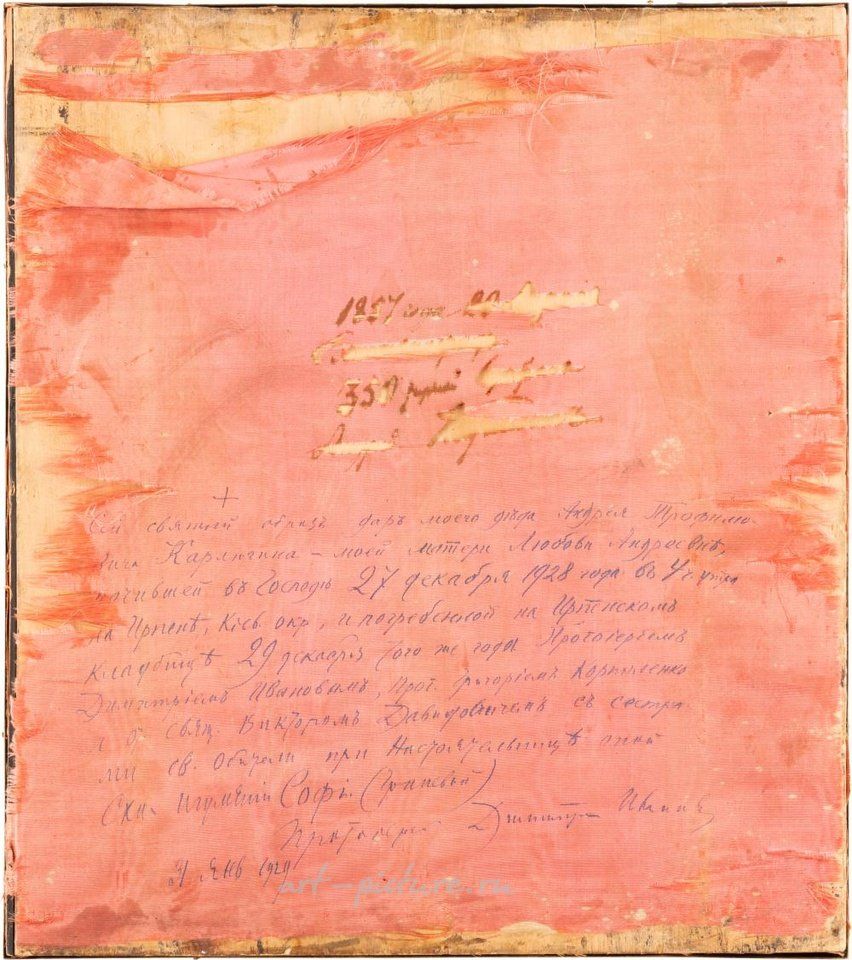 1857 года 20
350 рублей
+
Сей святый образъ даръ моего дѣда Андрея Трофимо-
вича Карлягина – моей матери Любови Андреевнѣ,
почившей въ Господѣ 27 декабря 1928 года въ 4 ч. утра
на Ирпенѣ, Кіев. окр., и погребенной на Ирпенскомъ
кладбищѣ 29 декабря того же года Протоіереемъ
Димитріемъ Ивановымъ, Прот. Григоріемъ Корниленко
и свящ. Викторомъ Давидовичемъ съ сестра-
ми св. Обители при Настоятельницѣ оной
Схи-игуменіи Софіи (Гриневой)
Протоіерей Димитрій Ивановъ
Янв 1929
art-picture.ru